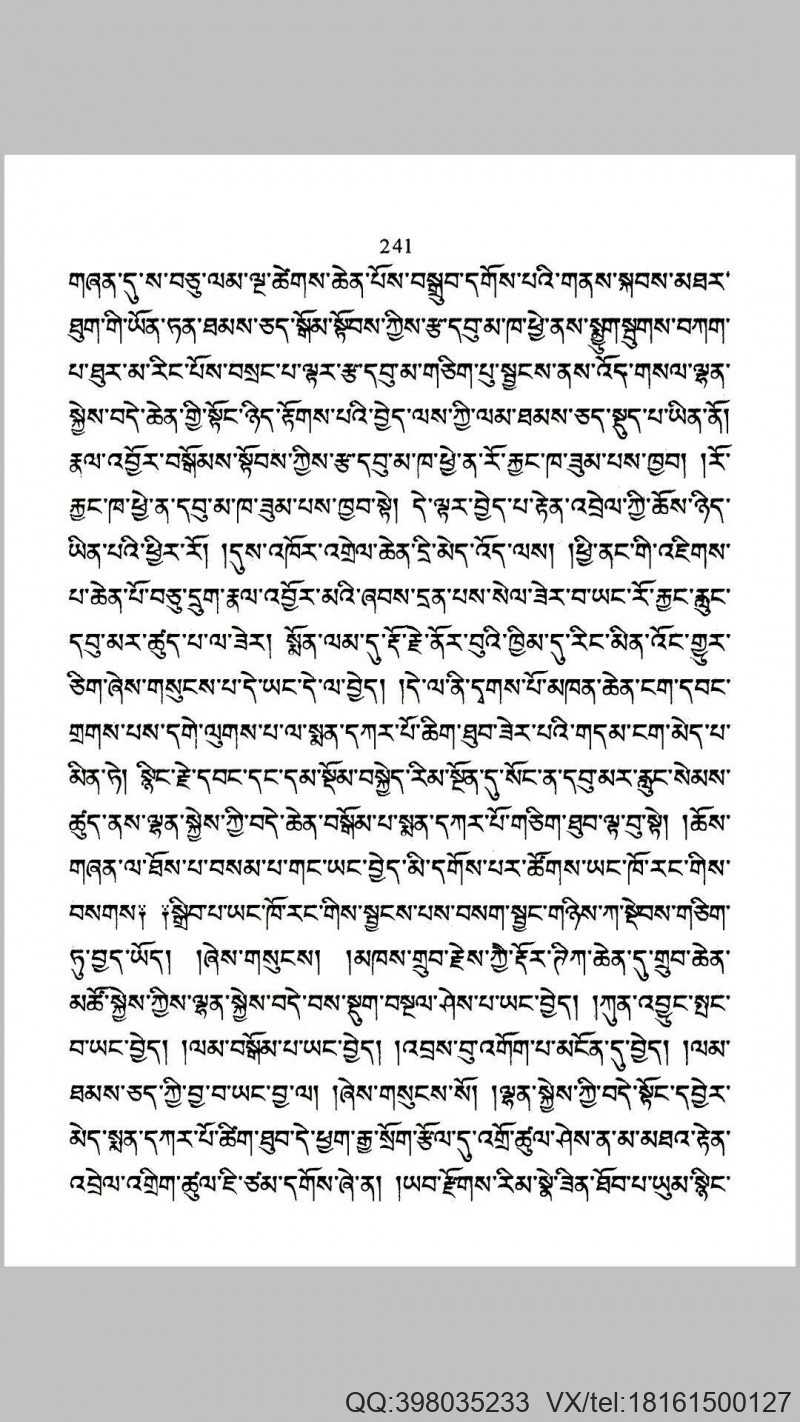 241
གཞན་དུ་ས་བཅུ་ལམ་ལྔ་ཚེགས་ཆེན་པོས་བསྒྲུབ་དགོས་པའི་གནས་སྐབས་མཐར་
ཐུག་གི་ཡོན་ཏན་ཐམས་ཅད་སྒོམ་སྟོབས་ཀྱིས་རྩ་དབུ་མ་ཁ་ཕྱེ་ནས་སྨྱུག་སྦུགས་བཀག་
པ་ཐུར་མ་རིང་པོས་བསྲང་པ་ལྟར་རྩ་དབུ་མ་གཅིག་པུ་སྦྱངས་ནས་འོད་གསལ་ལྷན་
སྐྱེས་བདེ་ཆེན་གྱི་སྟོང་ཉིད་རྟོགས་པའི་བྱེད་ལས་ཀྱི་ལམ་ཐམས་ཅད་སྡུད་པ་ཡིན་ནོ།
རྣལ་འབྱོར་བསྒོམས་སྟོབས་ཀྱིས་རྩ་དབུ་མ་ཁ་ཕྱེ་ན་རོ་རྐྱང་ཁ་ཟུམ་པས་ཁྱབ། །རོ་
རྐྱང་ཁ་ཕྱེ་ན་དབུ་མ་ཁ་ཟུམ་པས་ཁྱབ་སྟེ། དེ་ལྟར་བྱེད་པ་རྟེན་འབྲེལ་ཀྱི་ཆོས་ཉིད་
ཡིན་པའི་ཕྱིར་རོ། །དུས་འཁོར་འགྲེལ་ཆེན་དྲི་མེད་འོད་ལས། །ཕྱི་ནང་གི་འཇིགས་
པ་ཆེན་པོ་བཅུ་དྲུག་རྣལ་འབྱོར་མའི་ཞབས་དྲན་པས་སེལ་ཟེར་བ་ཡང་རོ་རྐྱང་རླུང་
དབུ་མར་ཚུད་པ་ལ་ཟེར། སྨོན་ལམ་དུ་རྡོ་རྗེ་ནོར་བུའི་ཁྱིམ་དུ་རིང་མིན་འོང་གྱུར་
ཅིག་ཞེས་གསུངས་པ་དེ་ཡང་དེ་ལ་བྱེད། །དེ་ལ་ནི་དྭགས་པོ་མཁན་ཆེན་ངག་དབང་
གྲགས་པས་དགེ་ལུགས་པ་ལ་སྨན་དཀར་པོ་ཆིག་ཐུབ་ཟེར་པའི་གདམ་ངག་མེད་པ་
མིན་ཏེ། སྙིང་རྗེ་དབང་དང་དམ་སྡོམ་བསྐྱེད་རིམ་སྔོན་དུ་སོང་ན་དབུ་མར་རླུང་སེམས་
ཚུད་ནས་ལྷན་སྐྱེས་ཀྱི་བདེ་ཆེན་བསྒོམ་པ་སྨན་དཀར་པོ་གཅིག་ཐུབ་ལྟ་བུ་སྟེ། །ཆོས་
གཞན་ལ་ཐོས་པ་བསམ་པ་གང་ཡང་བྱེད་མི་དགོས་པར་ཚོགས་ཡང་ཁོ་རང་གིས་
བསགས༑ ༑སྒྲིབ་པ་ཡང་ཁོ་རང་གིས་སྦྱངས་པས་བསག་སྦྱང་གཉིས་ཀ་སྡེབས་གཅིག་
ཏུ་བྱད་ཡོད། །ཞེས་གསུངས། །མཁས་གྲུབ་རྗེས་ཀྱཻ་རྡོར་ཊིཀ་ཆེན་དུ་གྲུབ་ཆེན་
མཚོ་སྐྱེས་ཀྱིས་ལྷན་སྐྱེས་བདེ་བས་སྡུག་བསྔལ་ཤེས་པ་ཡང་བྱེད། །ཀུན་འབྱུང་སྤང་
བ་ཡང་བྱེད། །ལམ་བསྒོམ་པ་ཡང་བྱེད། །འབྲས་བུ་འགོག་པ་མངོན་དུ་བྱེད། །ལམ་
ཐམས་ཅད་ཀྱི་བྱ་བ་ཡང་བྱ་ལ། །ཞེས་གསུངས་སོ། །ལྷན་སྐྱེས་ཀྱི་བདེ་སྟོང་དབྱེར་
མེད་སྨན་དཀར་པོ་ཚིག་ཐུབ་དེ་ཕྱག་རྒྱ་སྲོག་རྩོལ་དུ་འགྲོ་ཚུལ་ཤེས་ན་མ་མཐའ་རྟེན་
འབྲེལ་འགྲིག་ཚུལ་ཇི་ཙམ་དགོས་ཞེ་ན། །ཡབ་རྫོགས་རིམ་སྣེ་ཟིན་ཐོབ་པ་ཡུམ་སྙིང་
QQ:398035233 VX/tel:18161500127